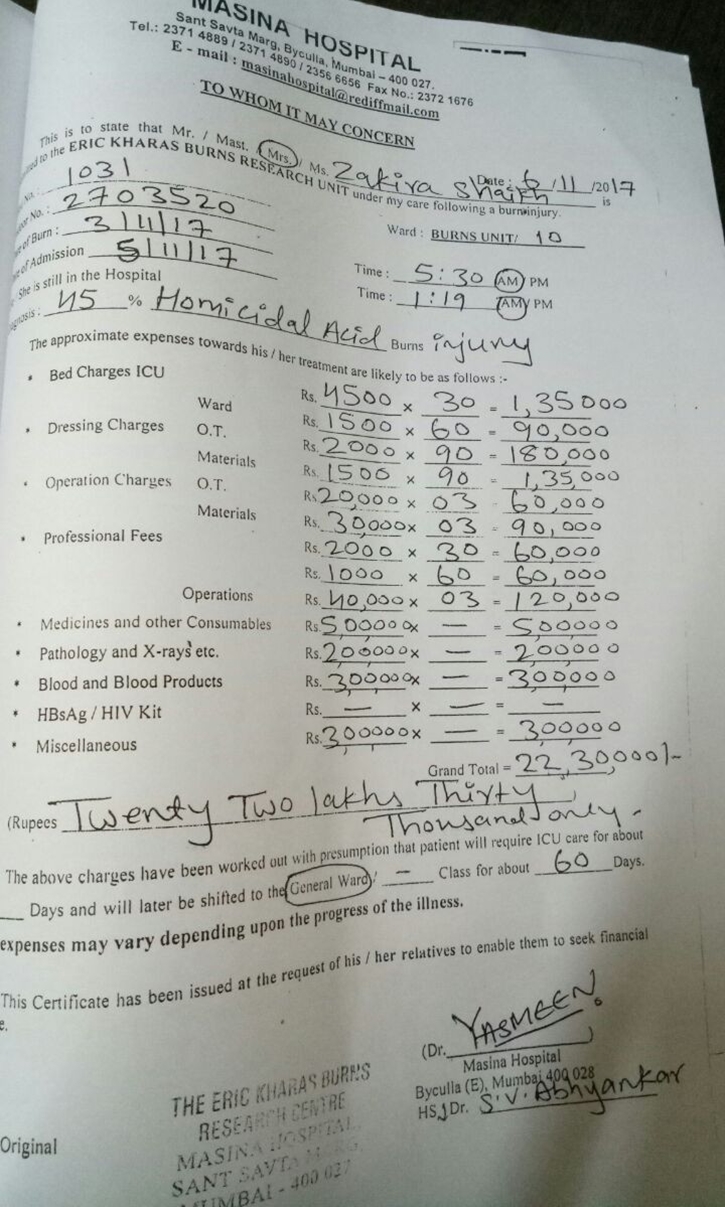 MASINA HOSPITAL
Sant Savta Marg, Byculla, Mumbai – 400 027.
Tel.: 2371 4889 / 2371 4890 / 2356 6656 Fax No.: 2372 1676
E - mail : masinahospital@rediffmail.com
TO WHOM IT MAY CONCERN
Date : 6/11/2017
This is to state that Mr. / Mast. / Mrs. / Ms. Zakira Shaikh is
to the ERIC KHARAS BURNS RESEARCH UNIT under my care following a burn injury.
No. : 1031
No. : 2703520 Ward : BURNS UNIT/ 10
of Burn : 3/11/17 Time : 5:30 AM PM
of Admission 5/11/17 Time : 1:19 AM/ PM
She is still in the Hospital
45 % Homicidal Acid Burns injury
The approximate expenses towards his / her treatment are likely to be as follows :-
• Bed Charges ICU Rs. 4500 x 30 = 1,35000
Ward Rs. 1500 x 60 = 90,000
• Dressing Charges O.T. Rs. 2000 x 90 = 180,000
Materials Rs. 1500 x 90 = 1,35,000
• Operation Charges O.T. Rs. 20,000 x 03 = 60,000
Materials Rs. 30,000 x 03 = 90,000
• Professional Fees Rs. 2000 x 30 = 60,000
Rs. 1000 x 60 = 60,000
Operations Rs. 40,000 x 03 = 120,000
• Medicines and other Consumables Rs. 5,00000 x — = 5,00000
• Pathology and X-rays etc. Rs. 2,00000 x — = 2,00000
• Blood and Blood Products Rs. 3,00000 x — = 3,00000
• HBsAg / HIV Kit Rs. — x — = —
• Miscellaneous Rs. 3,00000 x — = 3,00000
Grand Total = 22,30,000/-
(Rupees Twenty Two lakhs Thirty
Thousand only -
The above charges have been worked out with presumption that patient will require ICU care for about
Days and will later be shifted to the General Ward / — Class for about 60 Days.
expenses may vary depending upon the progress of the illness.
This Certificate has been issued at the request of his / her relatives to enable them to seek financial
e.
YASMEEN.
(Dr. )
Masina Hospital
Byculla (E), Mumbai 400 028
HS Dr. S.V. Abhyankar
THE ERIC KHARAS BURNS
RESEARCH CENTRE
MASINA HOSPITAL
SANT SAVTA MARG,
MUMBAI - 400 027
Original